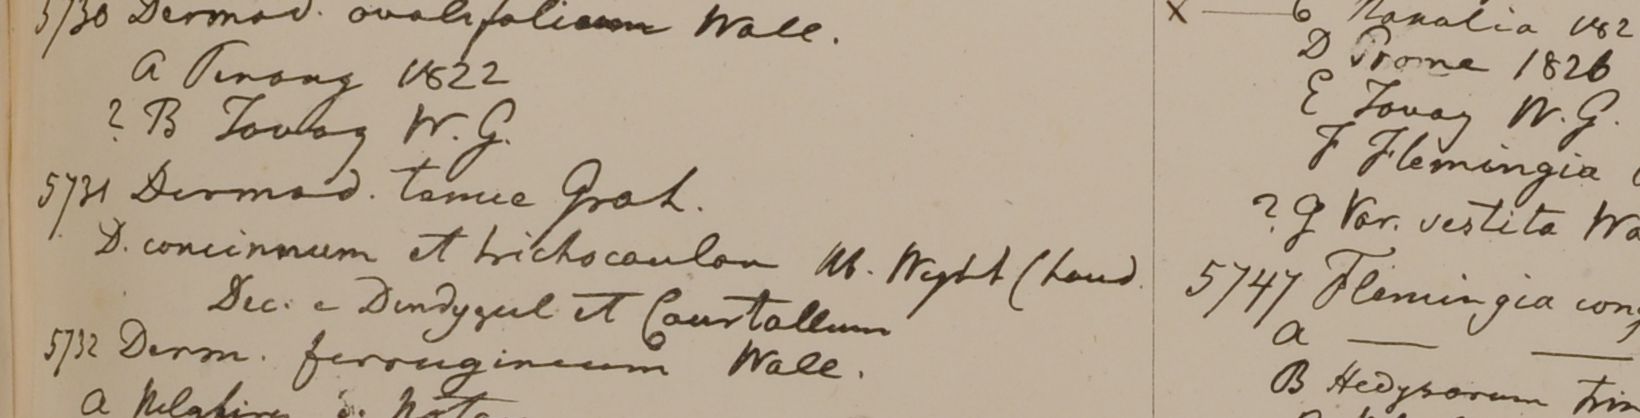 5730 Desmod. ovalifolium Wall.
A Penang 1822
? B Tavoy W. G.
5731 Desmod. tenue Grah.
D. concinnum et trichocaulon Hb. Wight (haud
Dec. e Dindygul et Courtallum
5732 Desm. ferrugineum Wall.
A
x — C 182
D Prome 1826
E Tavoy W. G.
F Flemingia
? G Var. vestita Wa
5747 Flemingia cong
A — —
B Hedysarum trin